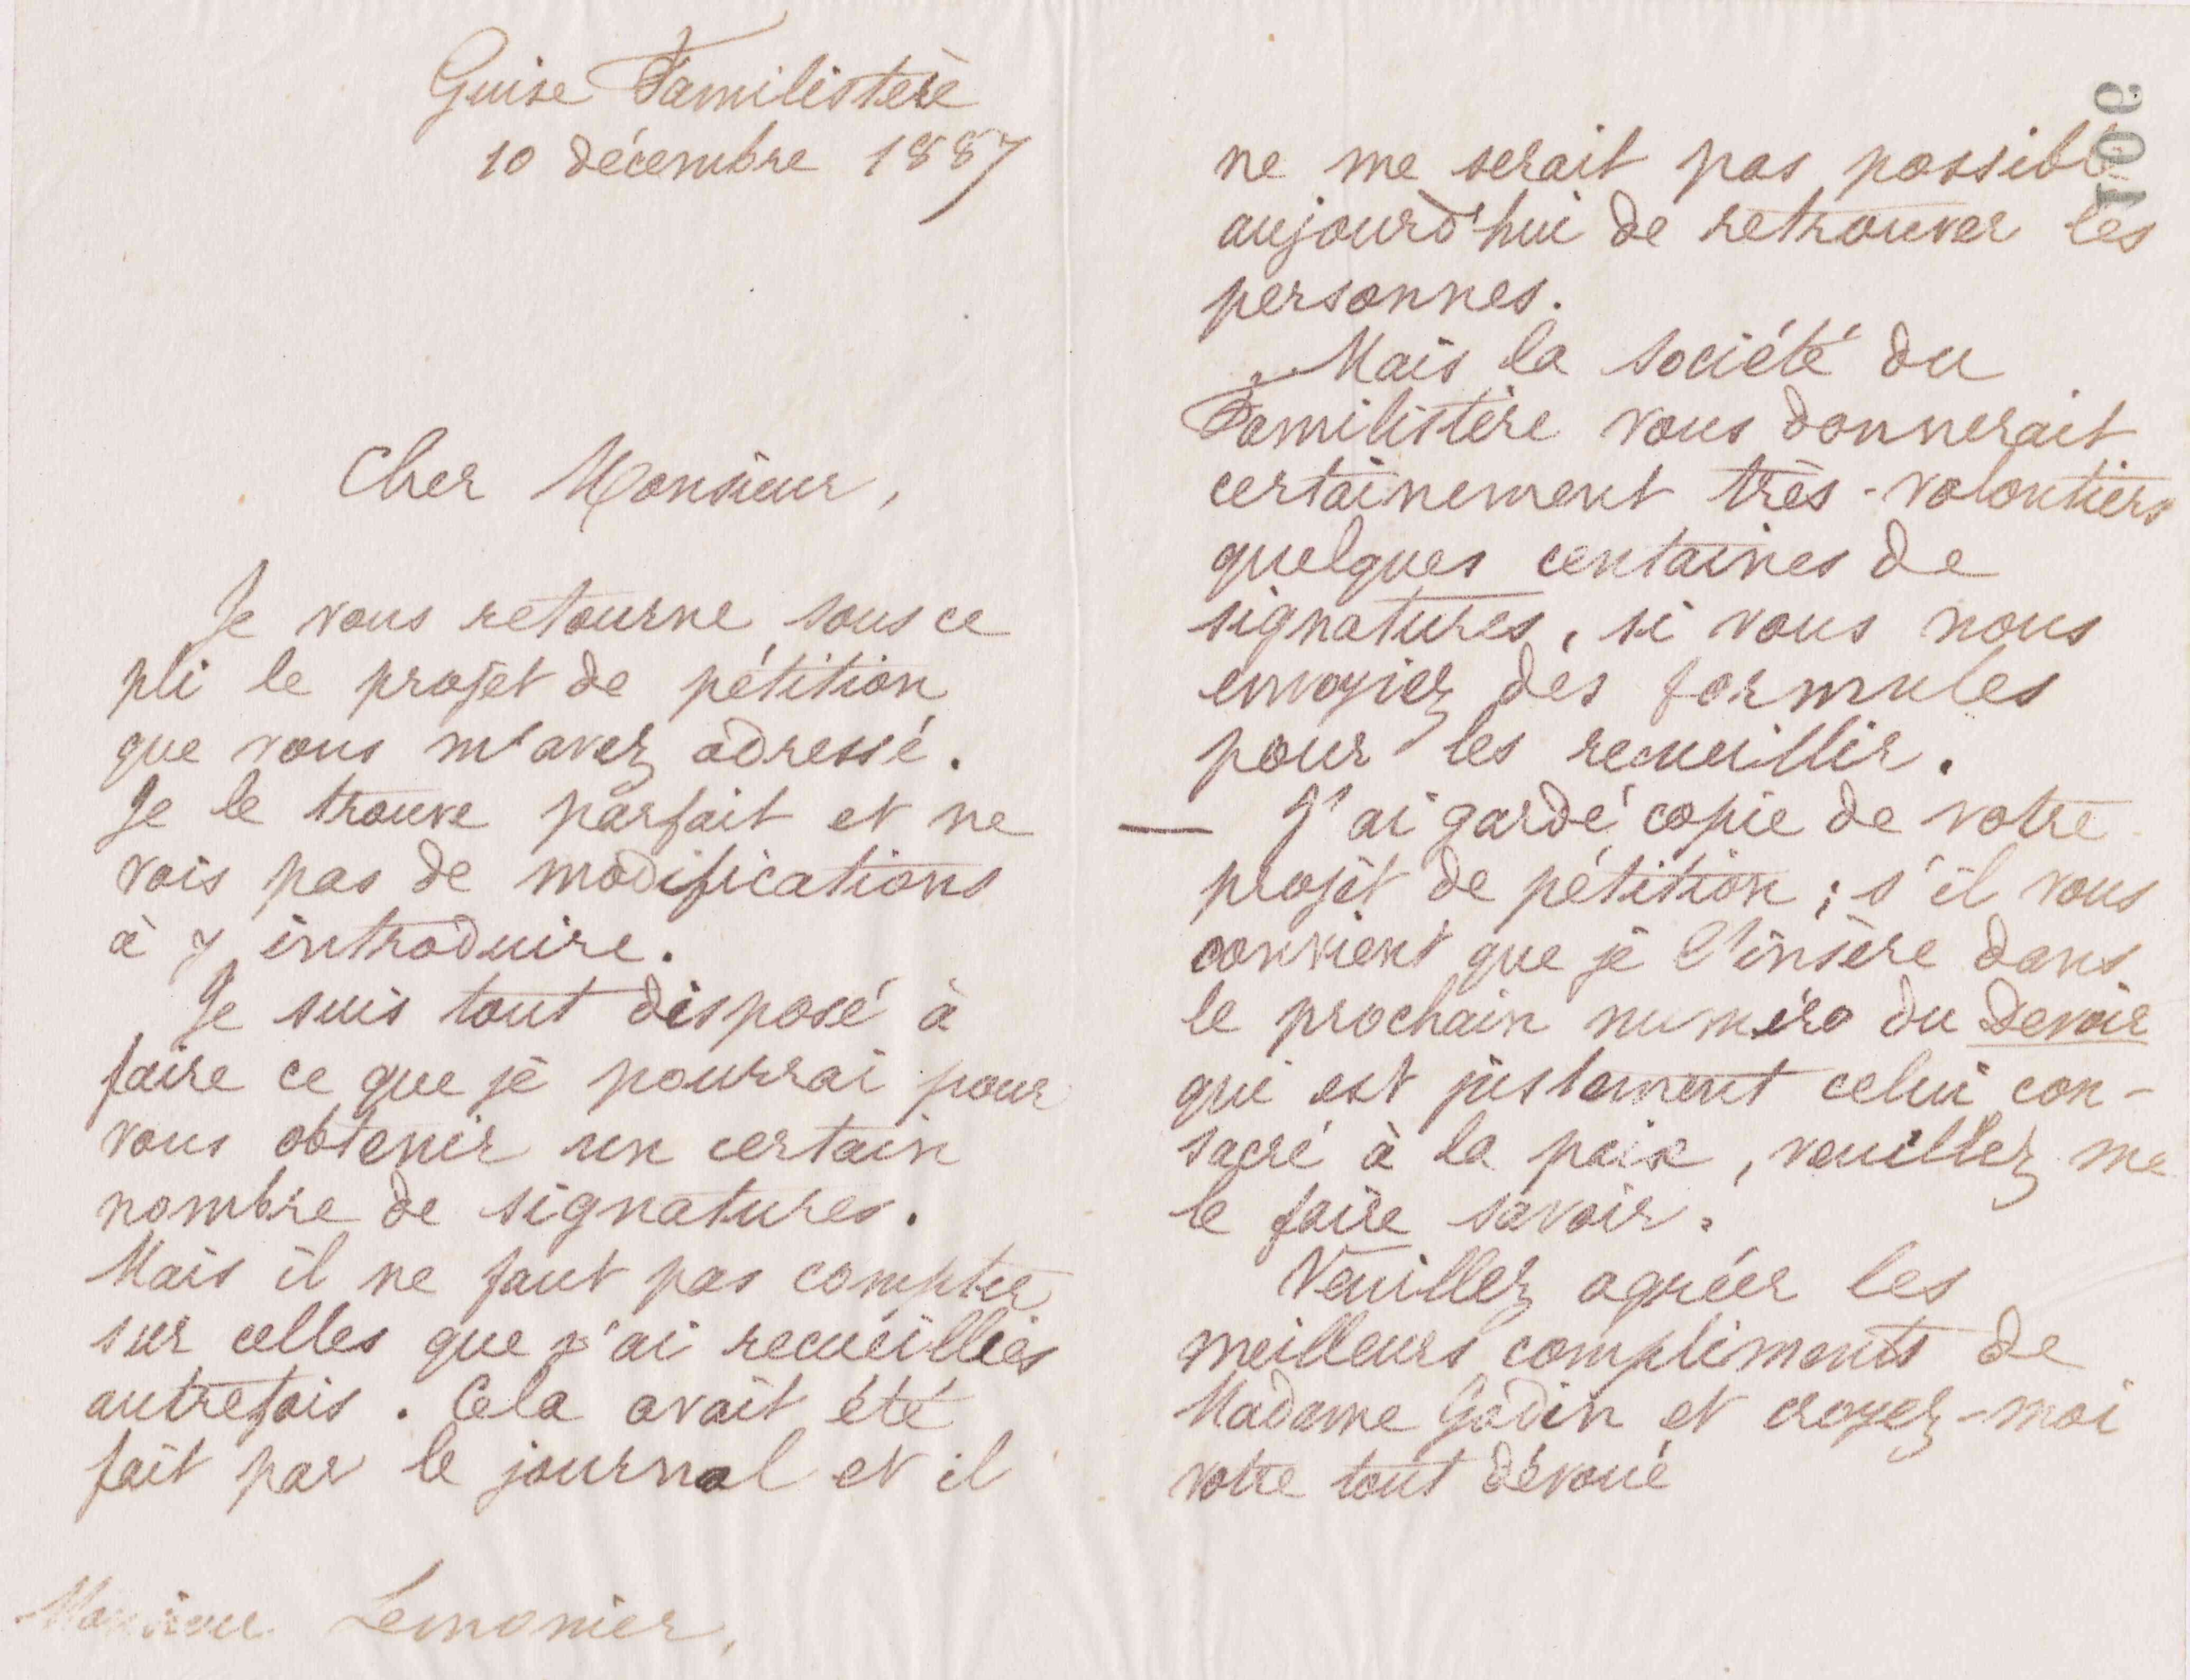 Guise Familistère
10 décembre 1887
Cher Monsieur,
Je vous retourne sous ce
pli le projet de pétition
que vous m'avez adressé.
Je le trouve parfait et ne
vois pas de modifications
à y introduire.
Je suis tout disposé à
faire ce que je pourrai pour
vous obtenir un certain
nombre de signatures.
Mais il ne faut pas compter
sur celles que j'ai recueillies
autrefois. Cela avait été
fait par le journal et il
Monsieur Lemonier.
ne me serait pas possible
aujourd'hui de retrouver les
personnes.
Mais la société du
Familistère vous donnerait
certainement très-volontiers
quelques centaines de
signatures, si vous nous
envoyiez des formules
pour les recueillir.
— J'ai gardé copie de votre
projet de pétition ; s'il vous
convient que je l'insère dans
le prochain numéro du Devoir
qui est justement celui con-
sacré à la paix, veuillez me
le faire savoir.
Veuillez agréer les
meilleurs compliments de
Madame Godin et croyez-moi
votre tout dévoué